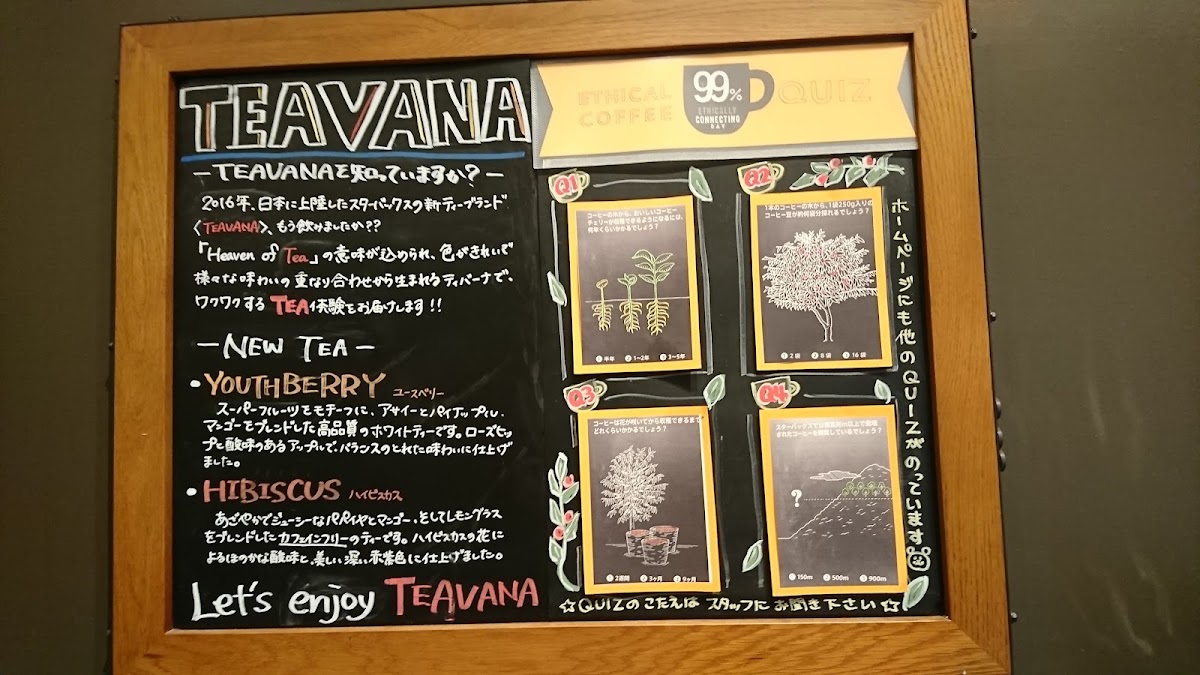 TEAVANA
—TEAVANAを知っていますか?—
2016年、日本に上陸したスターバックスの新ティーブランド
〈TEAVANA〉、もう飲みましたか??
「Heaven of Tea」の意味が込められ、色がきれいで
様々な味わいの重なり合わせから生まれるティバーナで、
ワクワクするTEA体験をお届けします!!
—NEW TEA—
•YOUTHBERRY ユースベリー
スーパーフルーツをモチーフに、アサイーとパイナップル、
マンゴーをブレンドした高品質のホワイトティーです。ローズヒッ
プと酸味のあるアップルで、バランスのとれた味わいに仕上げ
ました。
•HIBISCUS ハイビスカス
あざやかでジューシーなパパイヤとマンゴー、そしてレモングラス
をブレンドしたカフェインフリーのティーです。ハイビスカスの花に
よるほのかな酸味と美しい深い赤紫色に仕上げました。
Let's enjoy TEAVANA
ETHICAL COFFEE
99%
ETHICALLY
CONNECTING
DAY
QUIZ
Q1
コーヒーの木から、おいしいコーヒー
チェリーが収穫できるようになるには、
何年くらいかかるでしょう?
① 半年 ② 1~2年 ③ 3~5年
Q2
1本のコーヒーの木から、1袋250g入りの
コーヒー豆が約何袋分採れるでしょう?
① 2 袋 ② 8 袋 ③ 16 袋
Q3
コーヒーは花が咲いてから収穫できるまで
どれくらいかかるでしょう?
① 2週間 ② 3ヶ月 ③ 9ヶ月
Q4
スターバックスでは標高何m以上で栽培
されたコーヒーを購買しているでしょう?
?
① 150m ② 500m ③ 900m
ホームページにも他のQUIZがのっています
☆QUIZのこたえは スタッフにお聞き下さい☆